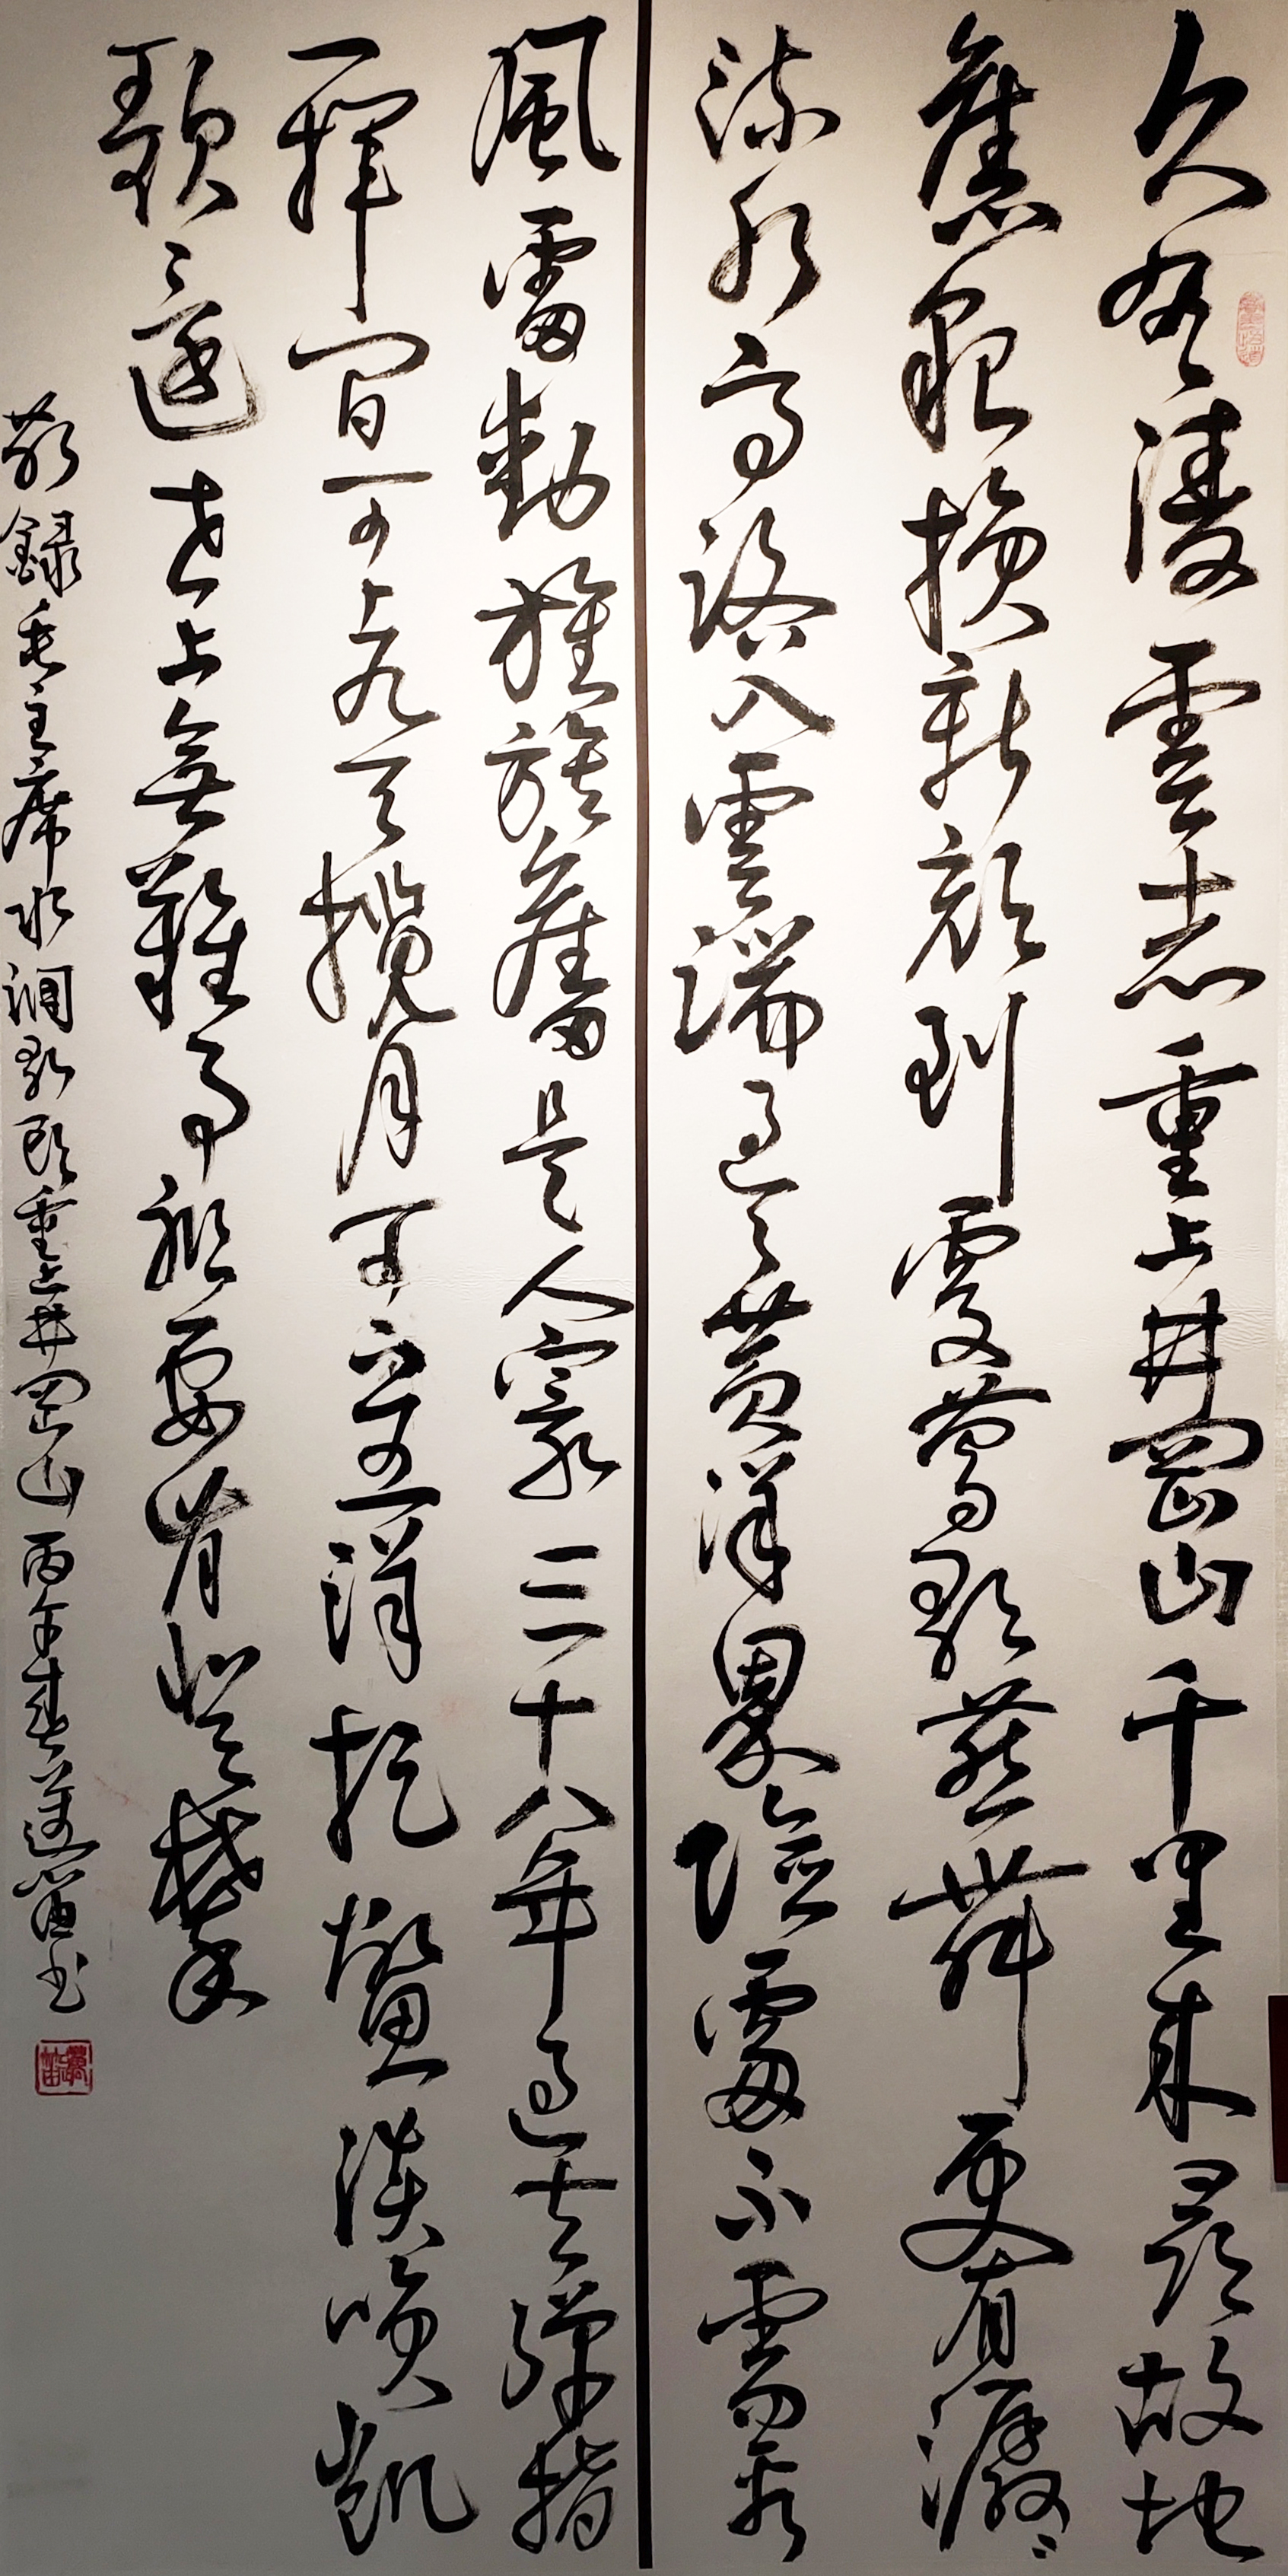 久有淩雲志重上井岡山千里來尋故地
舊貌換新顏到處鶯歌燕舞更有潺〻
流水高路入雲端過了黃洋界險處不須看
風雷動旌旗奮是人寰三十八年過去彈指
一揮間可上九天攬月可下五洋捉鱉談笑凱
歌還世上無難事祇要肯登攀
敬錄毛主席水調歌頭重上井岡山丙午春笛書